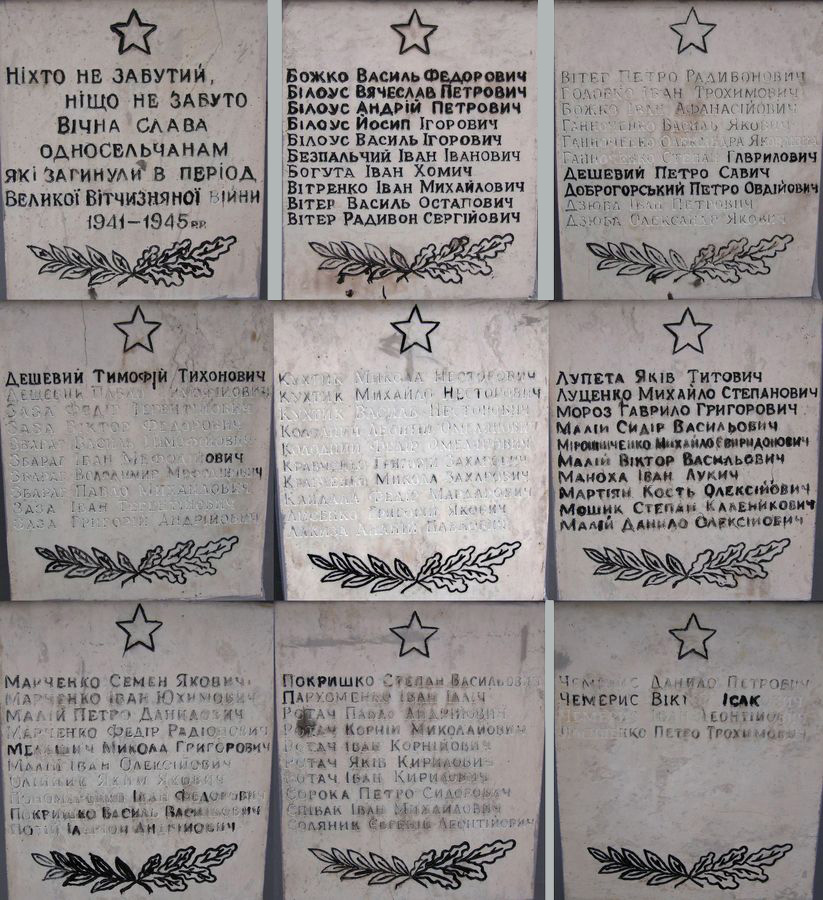 Ніхто не забутий,
ніщо не забуто
Вічна слава
односельчанам
які загинули в період
Великої Вітчизняної війни
1941–1945 р.р.
Божко Василь Федорович
Білоус Вячеслав Петрович
Білоус Андрій Петрович
Білоус Йосип Ігорович
Білоус Василь Ігорович
Безпальчий Іван Іванович
Богута Іван Хомич
Вітренко Іван Михайлович
Вітер Василь Остапович
Вітер Радивон Сергійович
Вітер Петро Радивонович
Головко Іван Трохимович
Божко Іван Афанасійович
Ганниченко Василь Якович
Ганниченко Олександра Яковівна
Ганниченко Степан Гаврилович
Дешевий Петро Савич
Доброгорський Петро Овдійович
Дзюба Іван Петрович
Дзюба Олександр Якович
Дешевий Тимофій Тихонович
Дешевий Павло
Заза Федіт Терентійович
Заза Віктор Федорович
Збараг Василь
Збараг Іван Мефодійович
Збараг Володимир Мефодійович
Збараг Павло Михайлович
Заза Іван Терентійович
Заза Григорій Андрійович
Кухтик Микола Несторович
Кухтик Михайло Несторович
Кухтик Василь Несторович
Колодний Леонтій Омелянович
Колодний Федір Омелянович
Кравченко Григорій Захарович
Кравченко Микола Захарович
Федір Макарович
Григорій Якович
Андрій Павлович
Лупета Яків Титович
Луценко Михайло Степанович
Мороз Гаврило Григорович
Малій Сидір Васильович
Мірошниченко Михайло Свиридонович
Малій Віктор Васильович
Маноха Іван Лукич
Мартіян Кость Олексійович
Мошик Степан Каленикович
Малій Данило Олексійович
Марченко Семен Якович
Марченко Іван Юхимович
Малій Петро Данилович
Марченко Федір Радіонович
Мелашич Микола Григорович
Малій Іван Олексійович
Олійник Яким Якович
Пономаренко Іван Федорович
Покришко Василь Васильович
Потій Іларіон Андрійович
Покришко Степан Васильович
Пархоменко Іван Ілліч
Ротач Павло Андрійович
Ротач Корній Миколайович
Ротач Іван Корнійович
Ротач Яків Кирилович
Ротач Іван Кирилович
Сорока Петро Сидорович
Співак Іван Михайлович
Соляник Євгеній Леонтійович
Чемерис Данило Петрович
Чемерис Вікт Ісак
Іван Леонтійович
Петро Трохимович